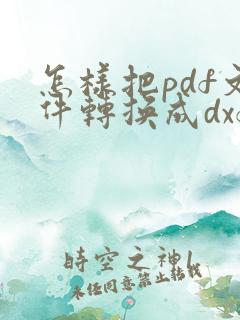 怎樣把pdf文
件轉換成dxf
時空之神1
未经同意禁止转载